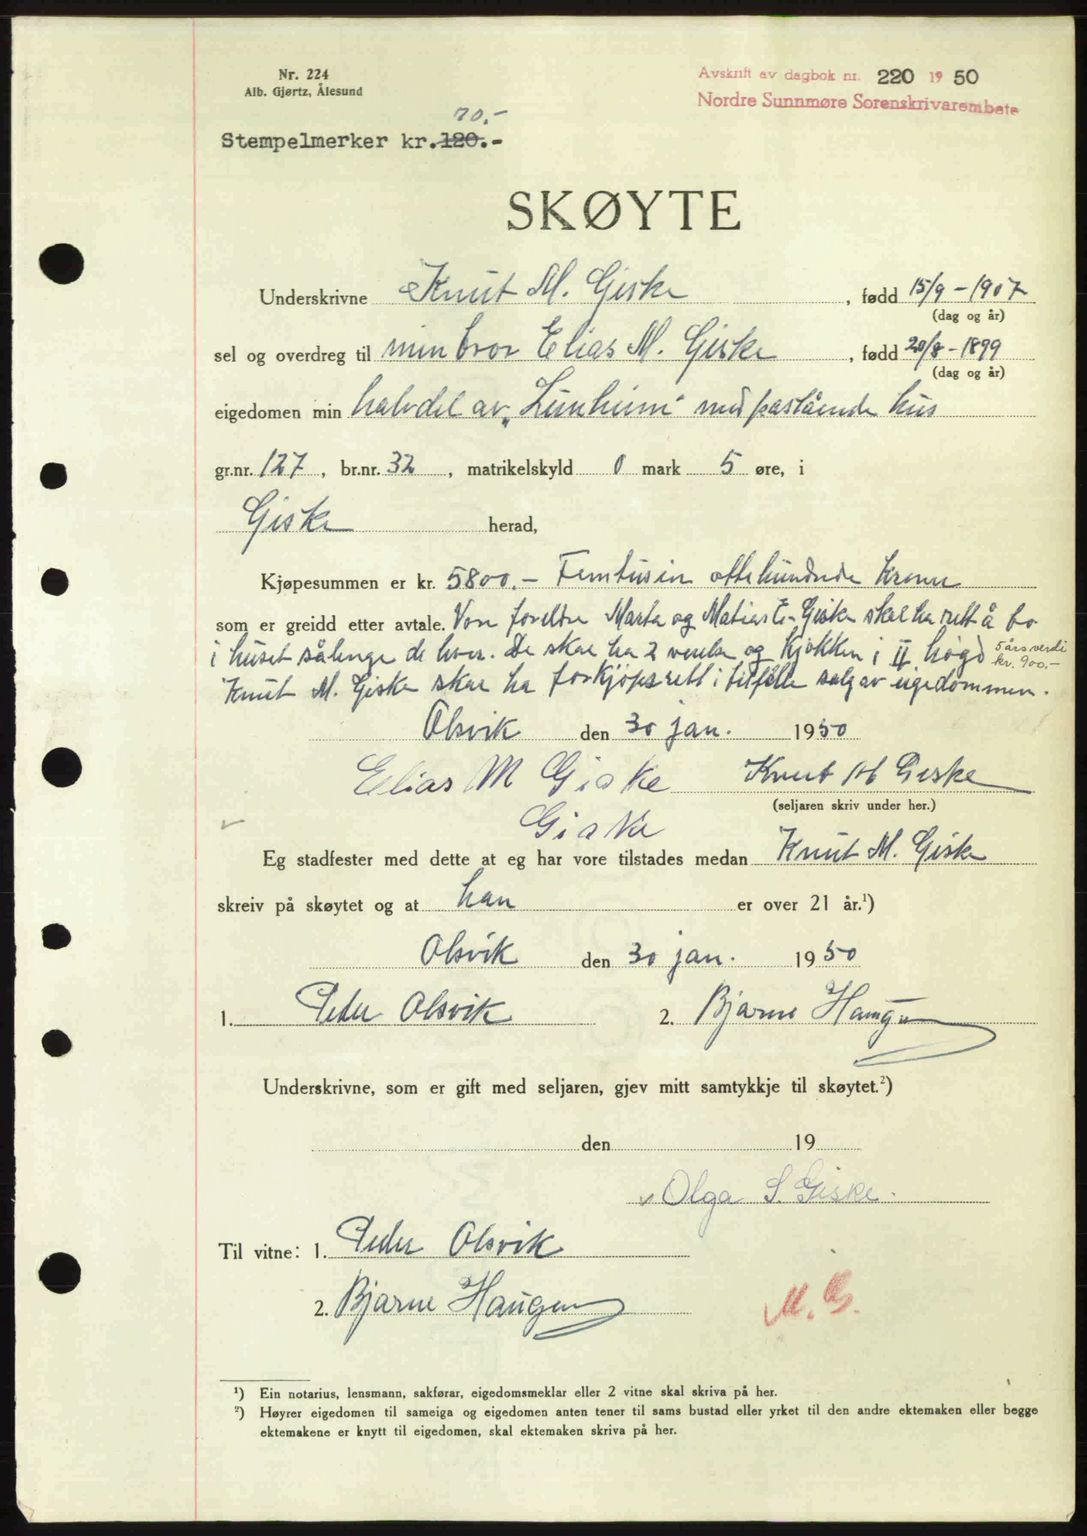 Nr. 224
Alb. Gjørtz, Ålesund
Avskrift av dagbok nr. 220 1950
Nordre Sunnmøre Sorenskrivarembete
70.-
Stempelmerker kr. 120.-
SKØYTE
Underskrivne Knut M. Giske, fødd 15/9-1907
(dag og år)
sel og overdreg til min bror Elias M. Giske, fødd 20/8-1899
(dag og år)
eigedomen min halvdel av „Lunheim" med påstående hus
gr.nr. 127, br.nr. 32, matrikelskyld 0 mark 5 øre, i
Giske herad,
Kjøpesummen er kr. 5800.- Femtusen ottehundrede Kroner
som er greidd etter avtale. Vore foreldre Marta og Matias E. Giske skal ha rett å bo
i huset sålenge de lever. De skal ha 2 verelse og kjøkken i II høgd 5 års verdi
kr. 900.-
Knut M. Giske skal ha forkjøpsrett i tilfelle salg av eigedommen.
Alsvik den 30 jan. 1950
Elias M Giske Knut M Giske
(seljaren skriv under her.)
Giske
Eg stadfester med dette at eg har vore tilstades medan Knut M. Giske
skreiv på skøytet og at han er over 21 år.¹)
Alsvik den 30 jan. 1950
1. Peder Alsvik 2. Bjarne Haugen
Underskrivne, som er gift med seljaren, gjev mitt samtykkje til skøytet.²)
den 19
Olga S. Giske.
Til vitne: 1. Peder Alsvik
2. Bjarne Haugen
M. G.
¹) Ein notarius, lensmann, sakførar, eigedomsmeklar eller 2 vitne skal skriva på her.
²) Høyrer eigedomen til sameiga og eigedomen anten tener til sams bustad eller yrket til den andre ektemaken eller begge
ektemakene er knytt til eigedomen, skal ektemaken skriva på her.